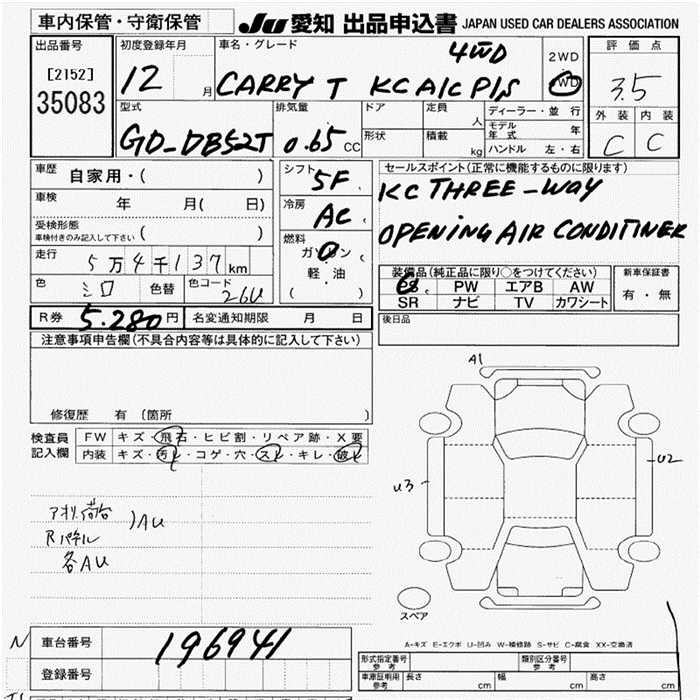 車内保管・守衛保管
JU 愛知 出品申込書 JAPAN USED CAR DEALERS ASSOCIATION
出品番号
[2152]
35083
初度登録年月
12 月
車名・グレード
4WD
CARRY T KC A/C P/S
2WD
4WD
評価点
3.5
外装 内装
C C
型式
GD-DB52T
排気量
0.65 CC
ドア
形状
定員 人
積載 kg
ディーラー・並行
モデル年式 年
ハンドル 左・右
車歴
自家用・( )
車検
年 月( 日)
受検形態
車検付きのみ記入して下さい ( )
走行
5万4千137km
色 シロ 色替 色コード 26U
シフト
5F
冷房
AC
燃料
ガソリン
軽・油
( )
セールスポイント(正常に機能するものに限ります)
KC THREE-WAY
OPENING AIR CONDITINER
装備品(純正品に限り○をつけてください)
PW エアB AW
SR ナビ TV カワシート
新車保証書
有・無
R券 5.280円 名変通知期限 月 日
後日品
注意事項申告欄(不具合内容等は具体的に記入して下さい)
修復歴 有 〔箇所 〕
検査員
記入欄
FW キズ・飛石・ヒビ割・リペア跡・X要
内装 キズ・汚れ・コゲ・穴・スレ・キレ・破れ
アオリ、荷台
Rパネル
)AU
各AU
A1
U2
U3
スペア
A-キズ E-エクボ U-凹み W-補修跡 S-サビ C-腐食 XX-交換済
N
車台番号 196941
登録番号
形式指定番号 参考
類別区分番号 参考
車庫証明用 参考 長さ cm 幅 cm 高さ cm